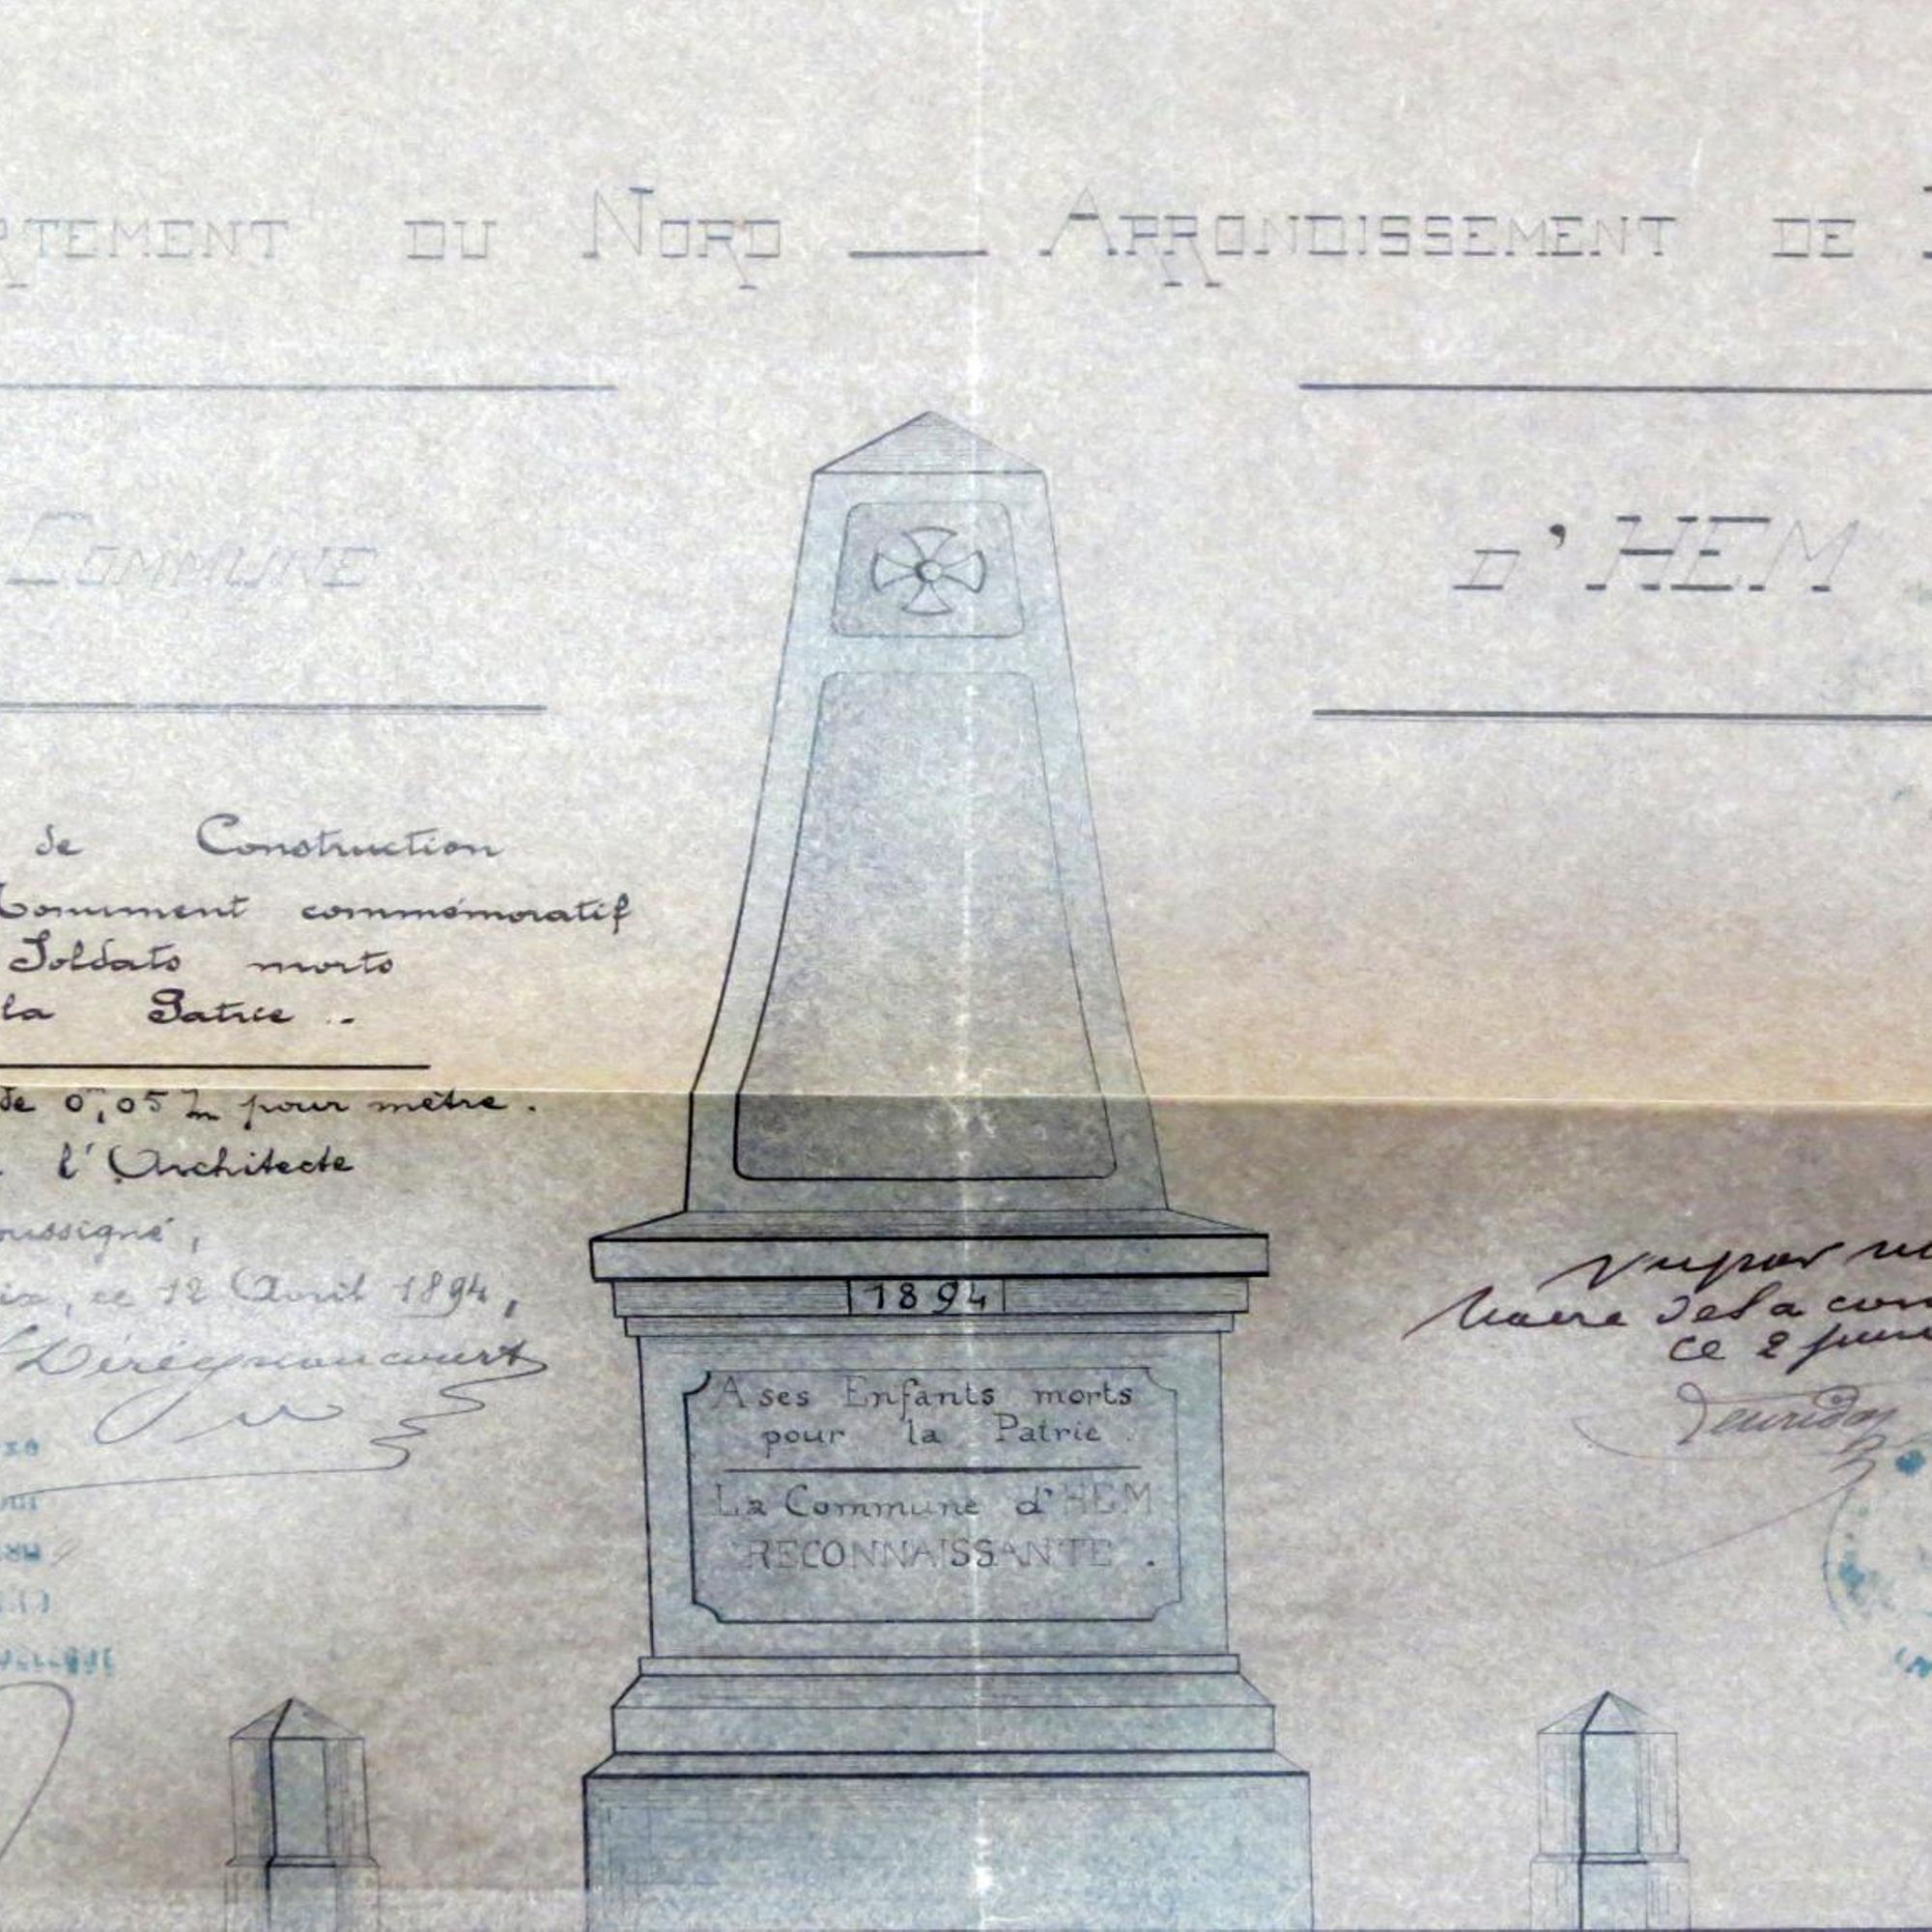 RTEMENT DU NORD — ARRONDISSEMENT DE
COMMUNE
D'HEM
de Construction
Monument commémoratif
Soldats morts
la Patrie ..
de 0,05 m pour mètre.
l'Architecte
oussigné,
ix, ce 12 Avril 1894,
1894
A ses Enfants morts
pour la Patrie.
La Commune d'HEM
RECONNAISSANTE.
Vu par
Maire de la com
ce 2 juin